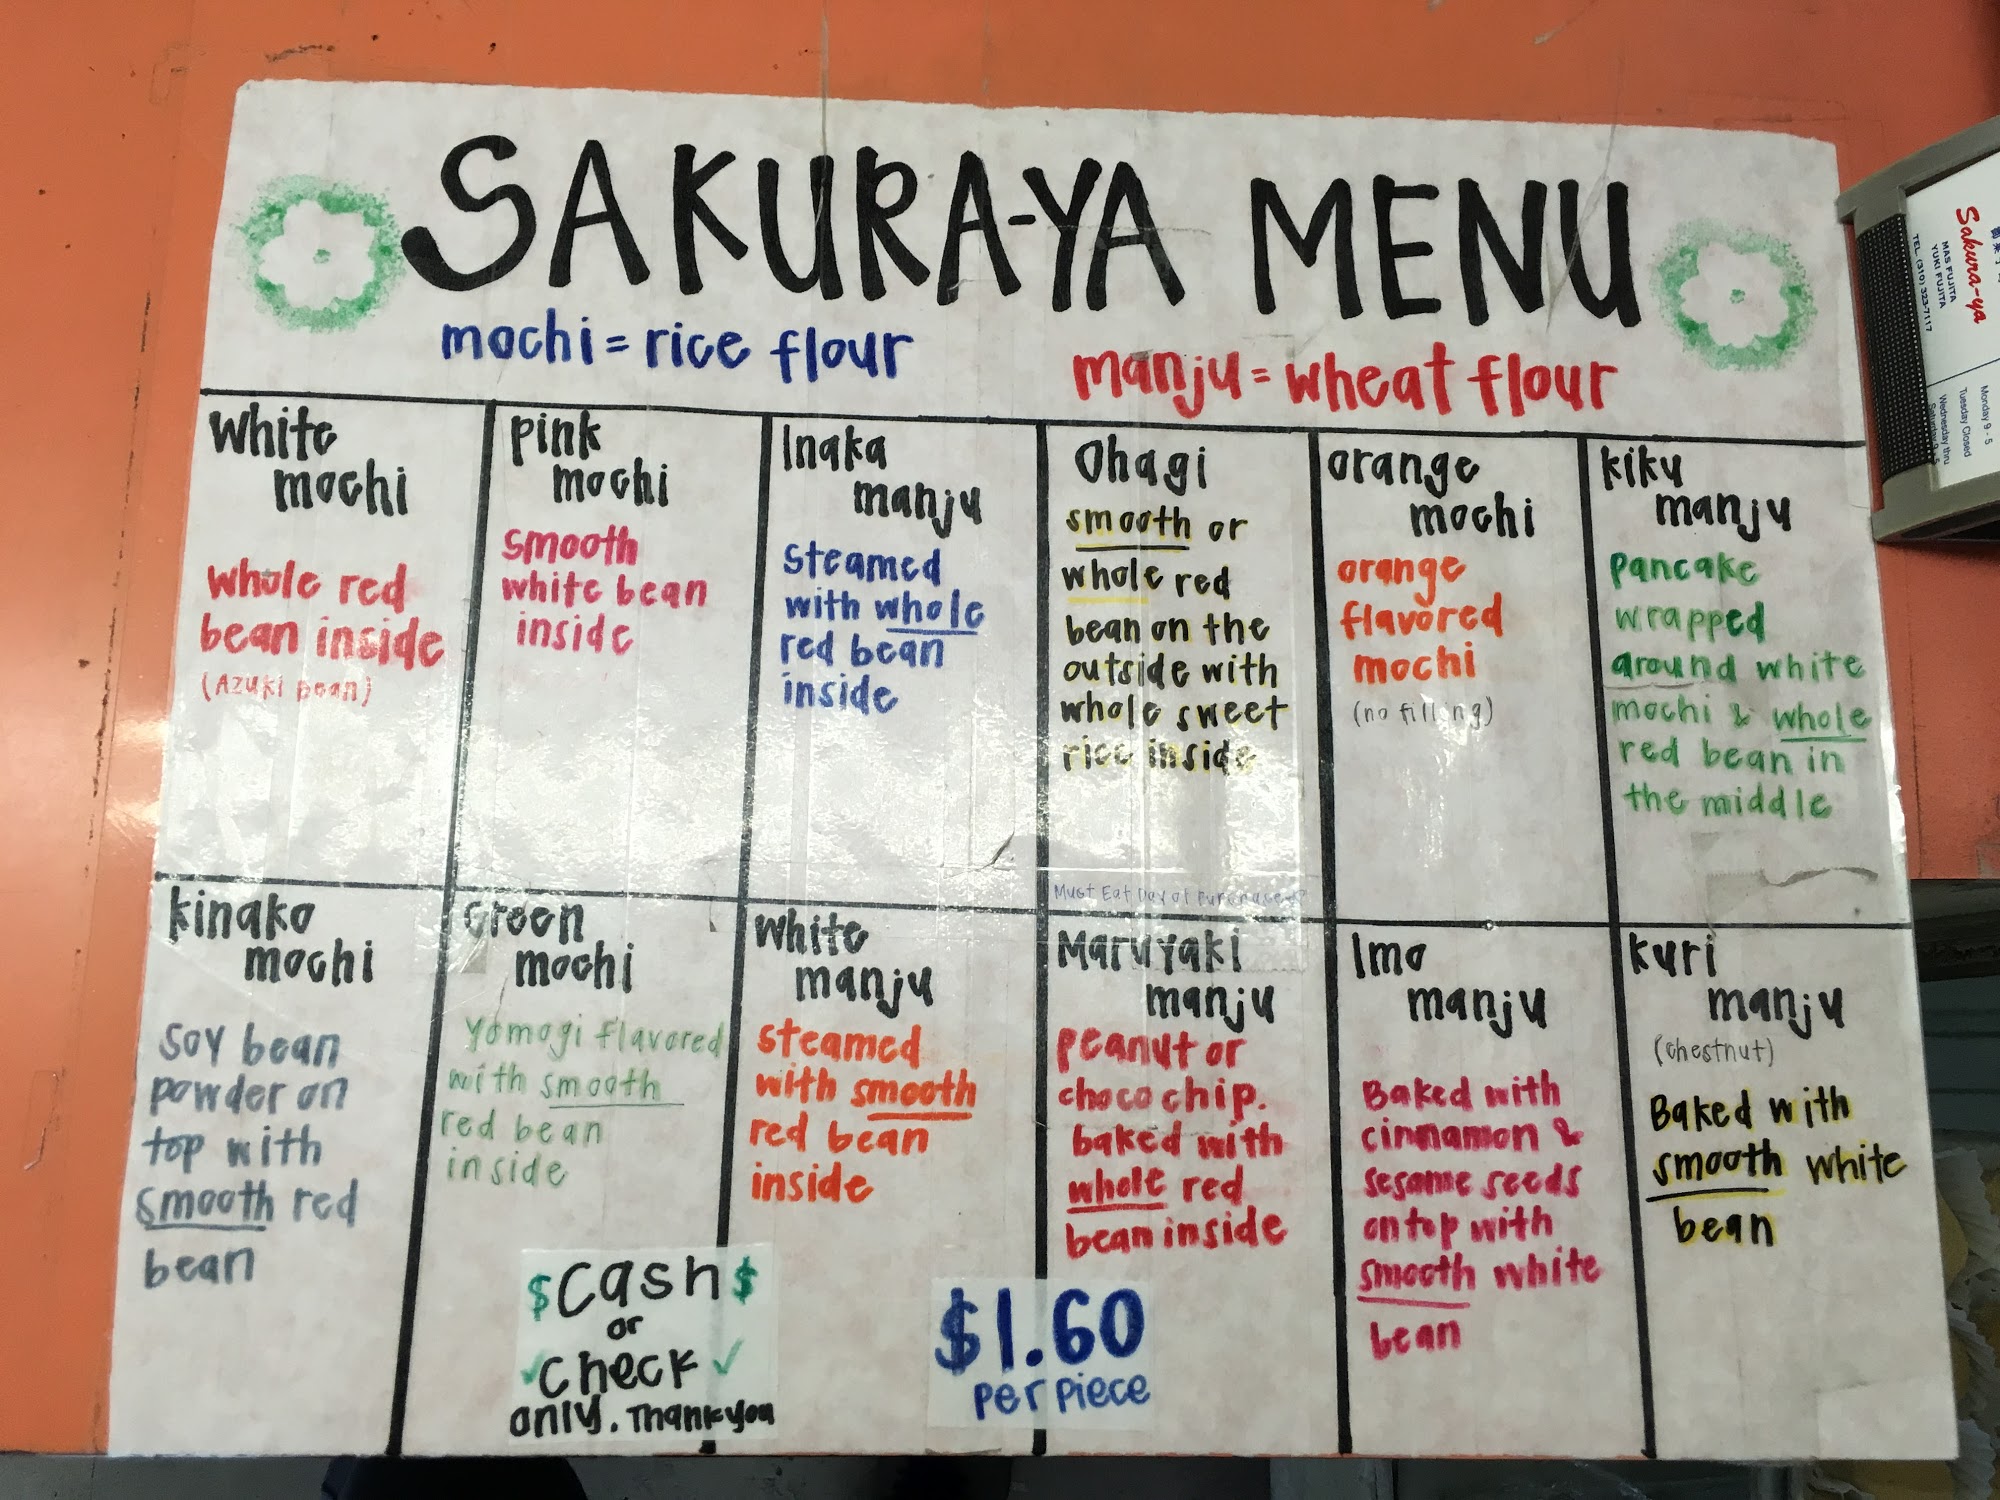 SAKURA-YA MENU
mochi = rice flour
manju = wheat flour
White
mochi
whole red
bean inside
(Azuki bean)
pink
mochi
smooth
white bean
inside
Inaka
manju
steamed
with whole
red bean
inside
Ohagi
smooth or
whole red
bean on the
outside with
whole sweet
rice inside
Must Eat Day of Purchase
orange
mochi
orange
flavored
mochi
(no filling)
kiku
manju
pancake
wrapped
around white
mochi & whole
red bean in
the middle
kinako
mochi
soy bean
powder on
top with
smooth red
bean
Green
mochi
yomogi flavored
with smooth
red bean
inside
White
manju
steamed
with smooth
red bean
inside
Maruyaki
manju
peanut or
choco chip.
baked with
whole red
bean inside
Imo
manju
Baked with
cinnamon &
sesame seeds
on top with
smooth white
bean
kuri
manju
(chestnut)
Baked with
smooth white
bean
$ Cash $
or
✓ check ✓
only. Thank you
$1.60
per piece
Sakura-ya
MAS FUJITA
YUKI FUJITA
TEL. (310) 323-7117
Monday 9 - 5
Tuesday Closed
Wednesday thru
Saturday 9 - 5